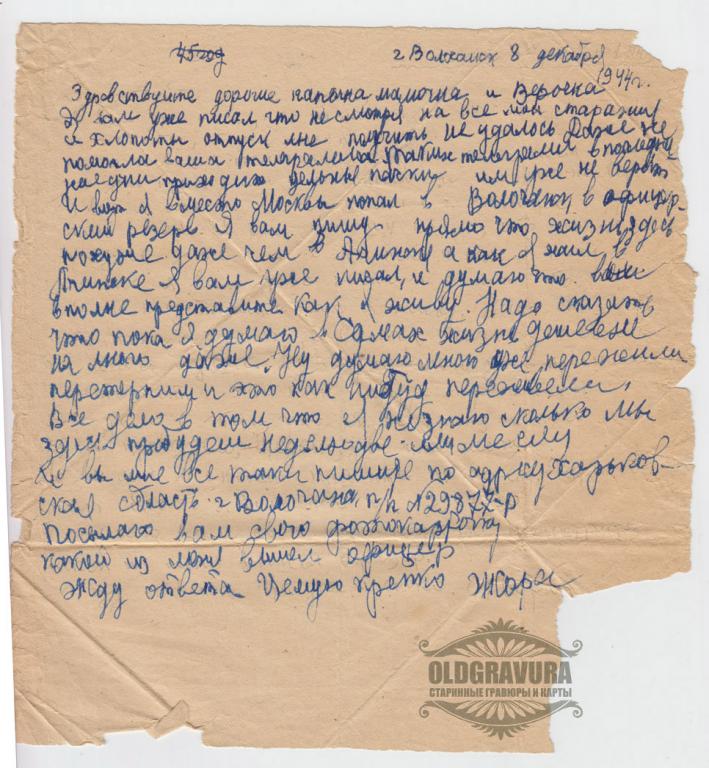 45 год г Волчанск 8 декабря
1944 г.
Здравствуйте дорогие папочка мамочка и Верочка
Я вам уже писал что несмотря на все мои старания
и хлопоты отпуск мне получить не удалось Даже не
помогла ваша телеграмма. Таких телеграмм в последн
нее дни приходит цельные пачки им уже не верят
И вот я вместо Москвы попал в Волочанск, в офицер-
ский резерв. Я вам пишу прямо что жизнь здесь
похуже даже чем в а как я жил в
я вам уже писал, и думаю что вы
вполне представите как я живу. Надо сказать
что пока я думаю в Сумах жизнь дешевле
на много даже. Ну думаю много уж пережили
перетерпим и это как нибуд переживем.
Все дело в том что я не знаю сколько мы
здесь пробудем неделю две или месяц
Но вы мне все таки пишите по адресу Харьков-
ская область г Волочанск п/п N29877-Р
Посылаю вам свою фотокарточку
какой из меня вышел офицер
Жду ответа Целую крепко Жора
OLDGRAVURA
СТАРИННЫЕ ГРАВЮРЫ И КАРТЫ